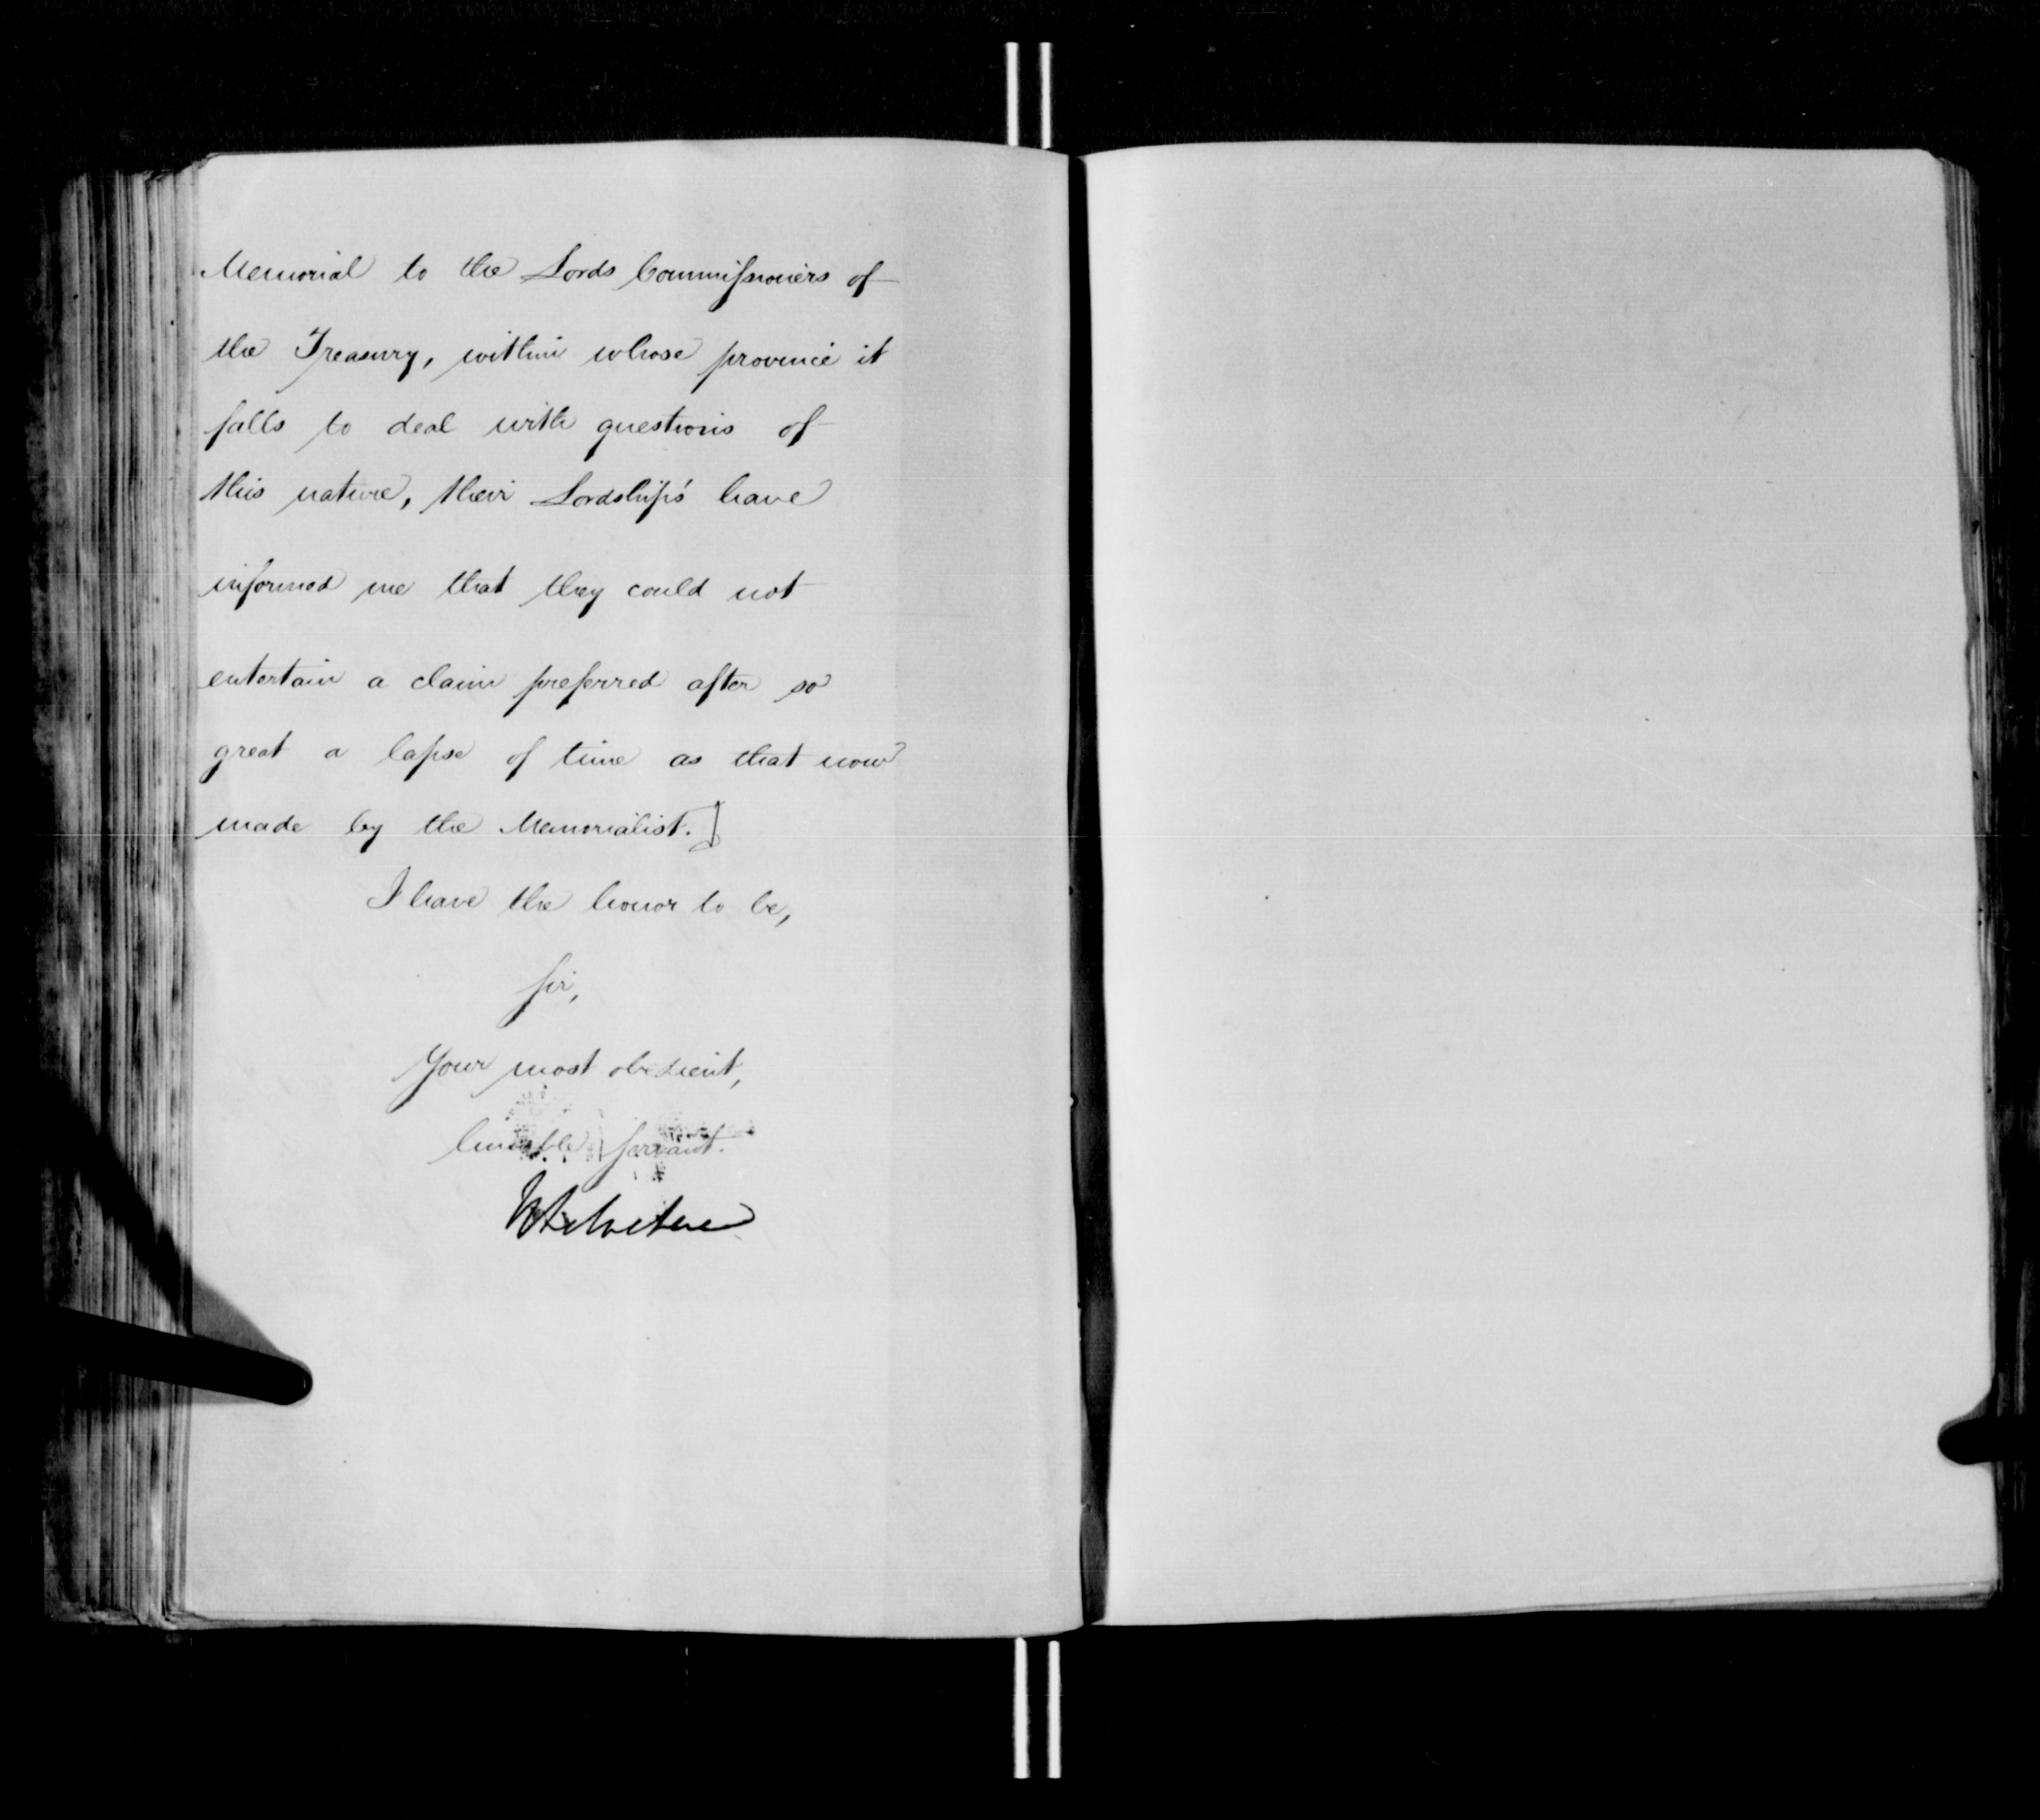 Memorial to the Lords Commissioners of
the Treasury, within whose province it
falls to deal with questions of
this nature, their Lordships' have
informed me that they could not
entertain a claim preferred after so
great a lapse of time as that now
made by the Memorialist.]
I have the honor to be,
Sir,
Your most obedient,
humble servant.